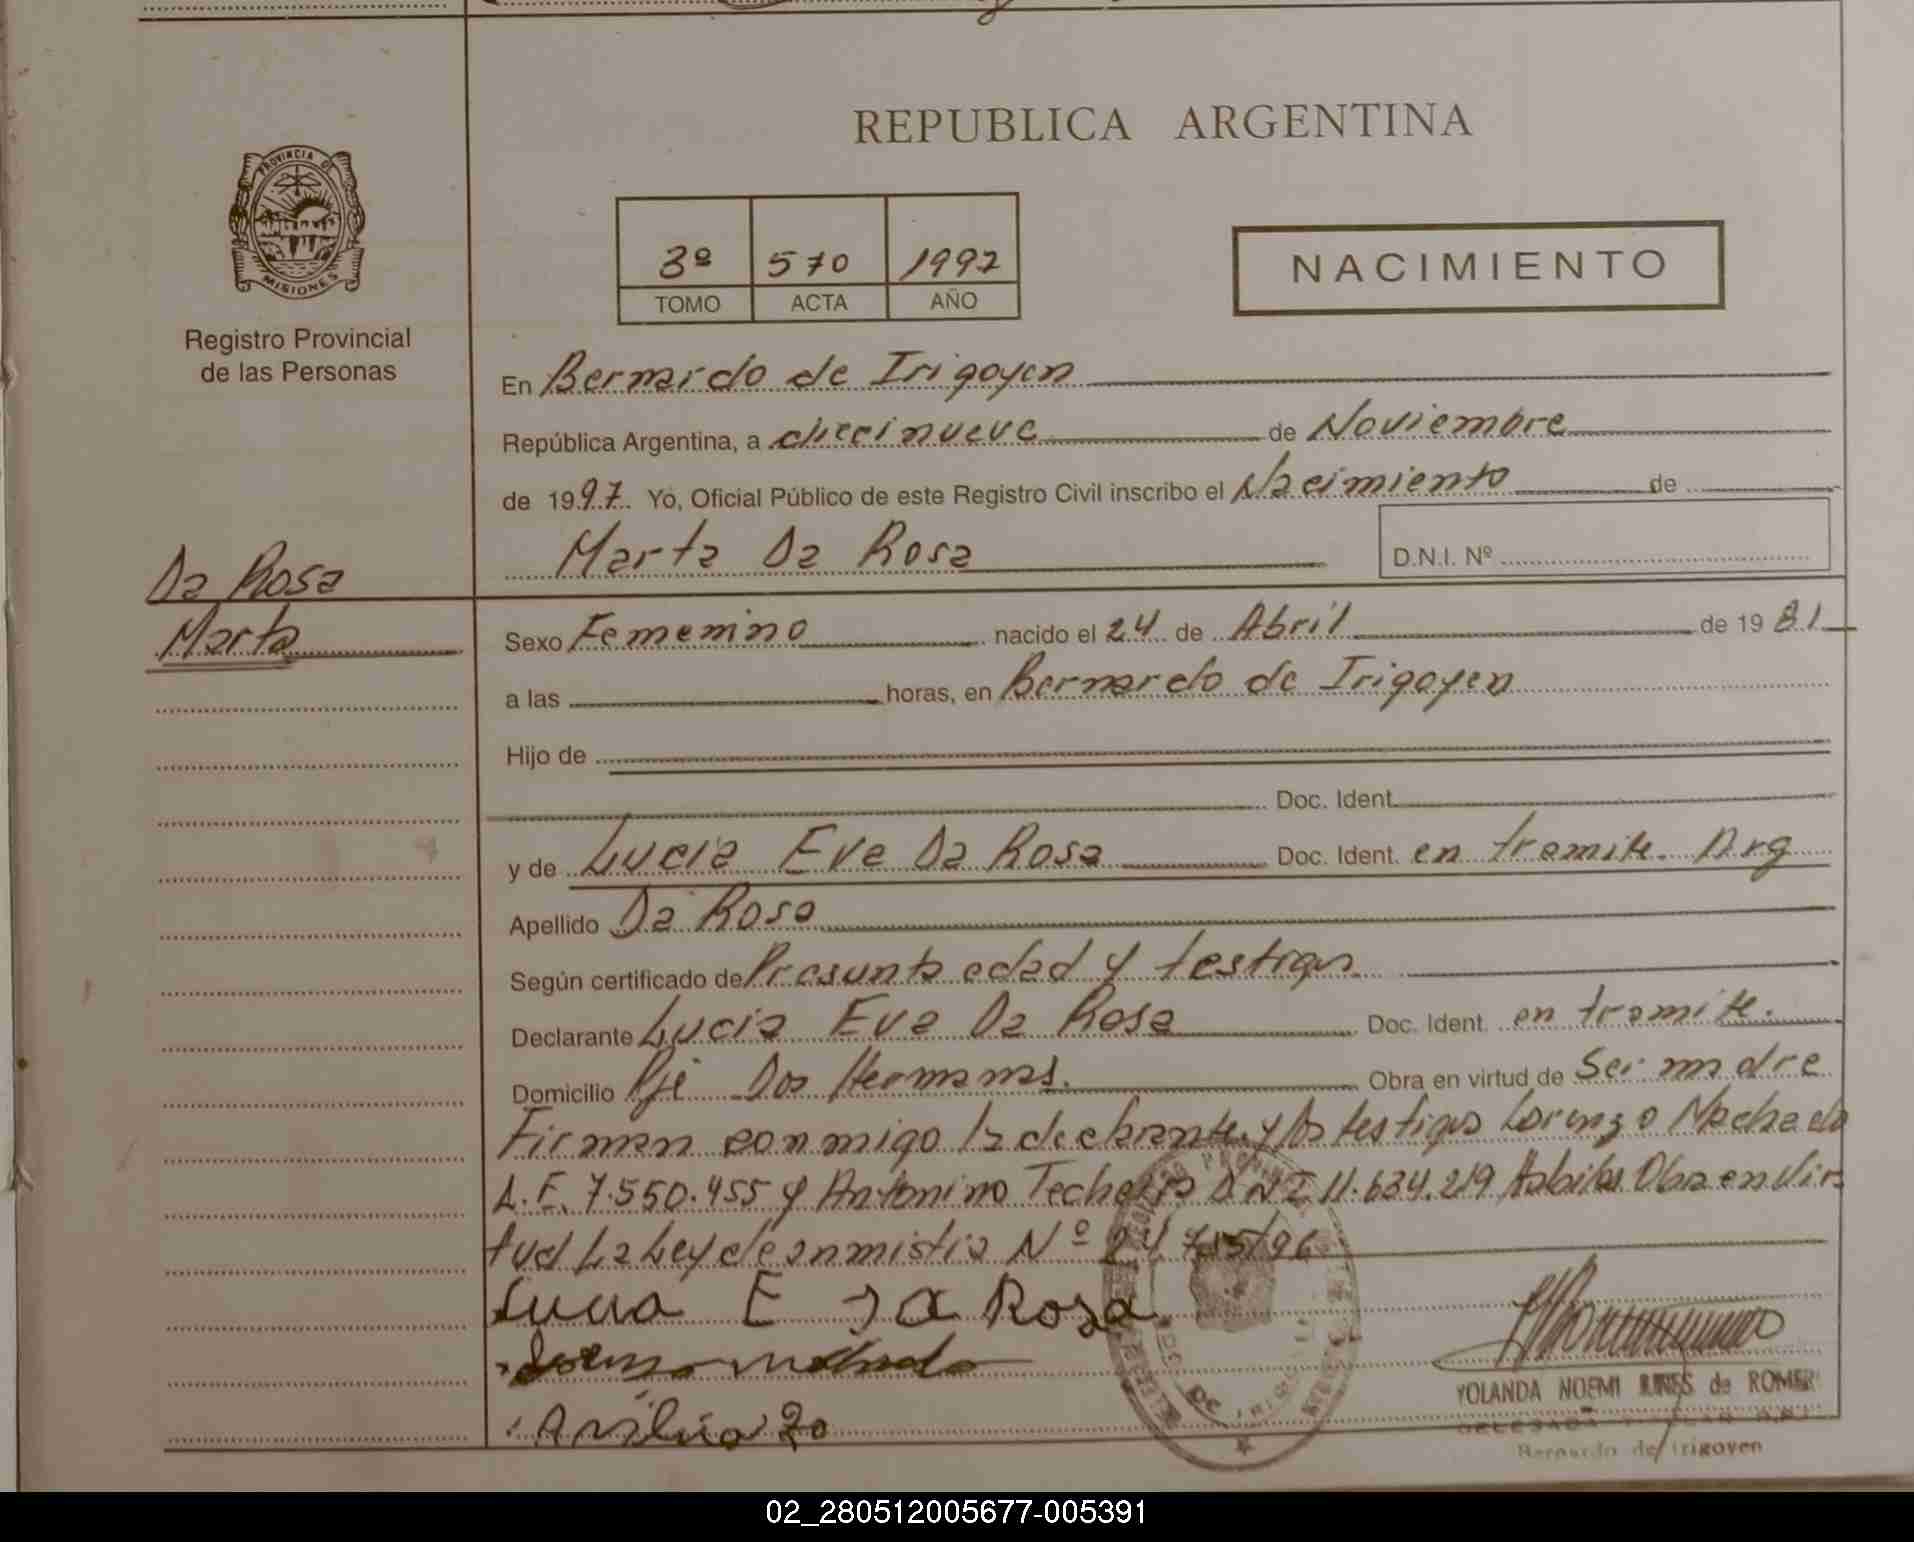 REPUBLICA ARGENTINA
PROVINCIA DE
MISIONES
Registro Provincial
de las Personas
3º 570 1997
TOMO ACTA AÑO
NACIMIENTO
En Bernardo de Irigoyen
República Argentina, a diecinueve de Noviembre
de 1997. Yo, Oficial Público de este Registro Civil inscribo el Nacimiento de
Marta Da Rosa D.N.I. Nº
Da Rosa
Marta
Sexo Femenino nacido el 24 de Abril de 1981
a las horas, en Bernardo de Irigoyen
Hijo de
Doc. Ident.
y de Lucia Eva Da Rosa Doc. Ident. en tramite. Arg
Apellido Da Rosa
Según certificado de Presunta edad y testigos
Declarante Lucia Eva Da Rosa Doc. Ident. en tramite.
Domicilio Pje Dos Hermanas. Obra en virtud de Ser madre
Firman conmigo la declarante y los testigos Lorenzo Machado
L.E. 7.550.455 y Antonino DNI 11.634.219 Habiles Obra en Vir
tud La Ley de anmistia Nº 24 755/96
Lucia E da Rosa
YOLANDA NOEMI de ROMER
Bernardo de Irigoyen
02_280512005677-005391